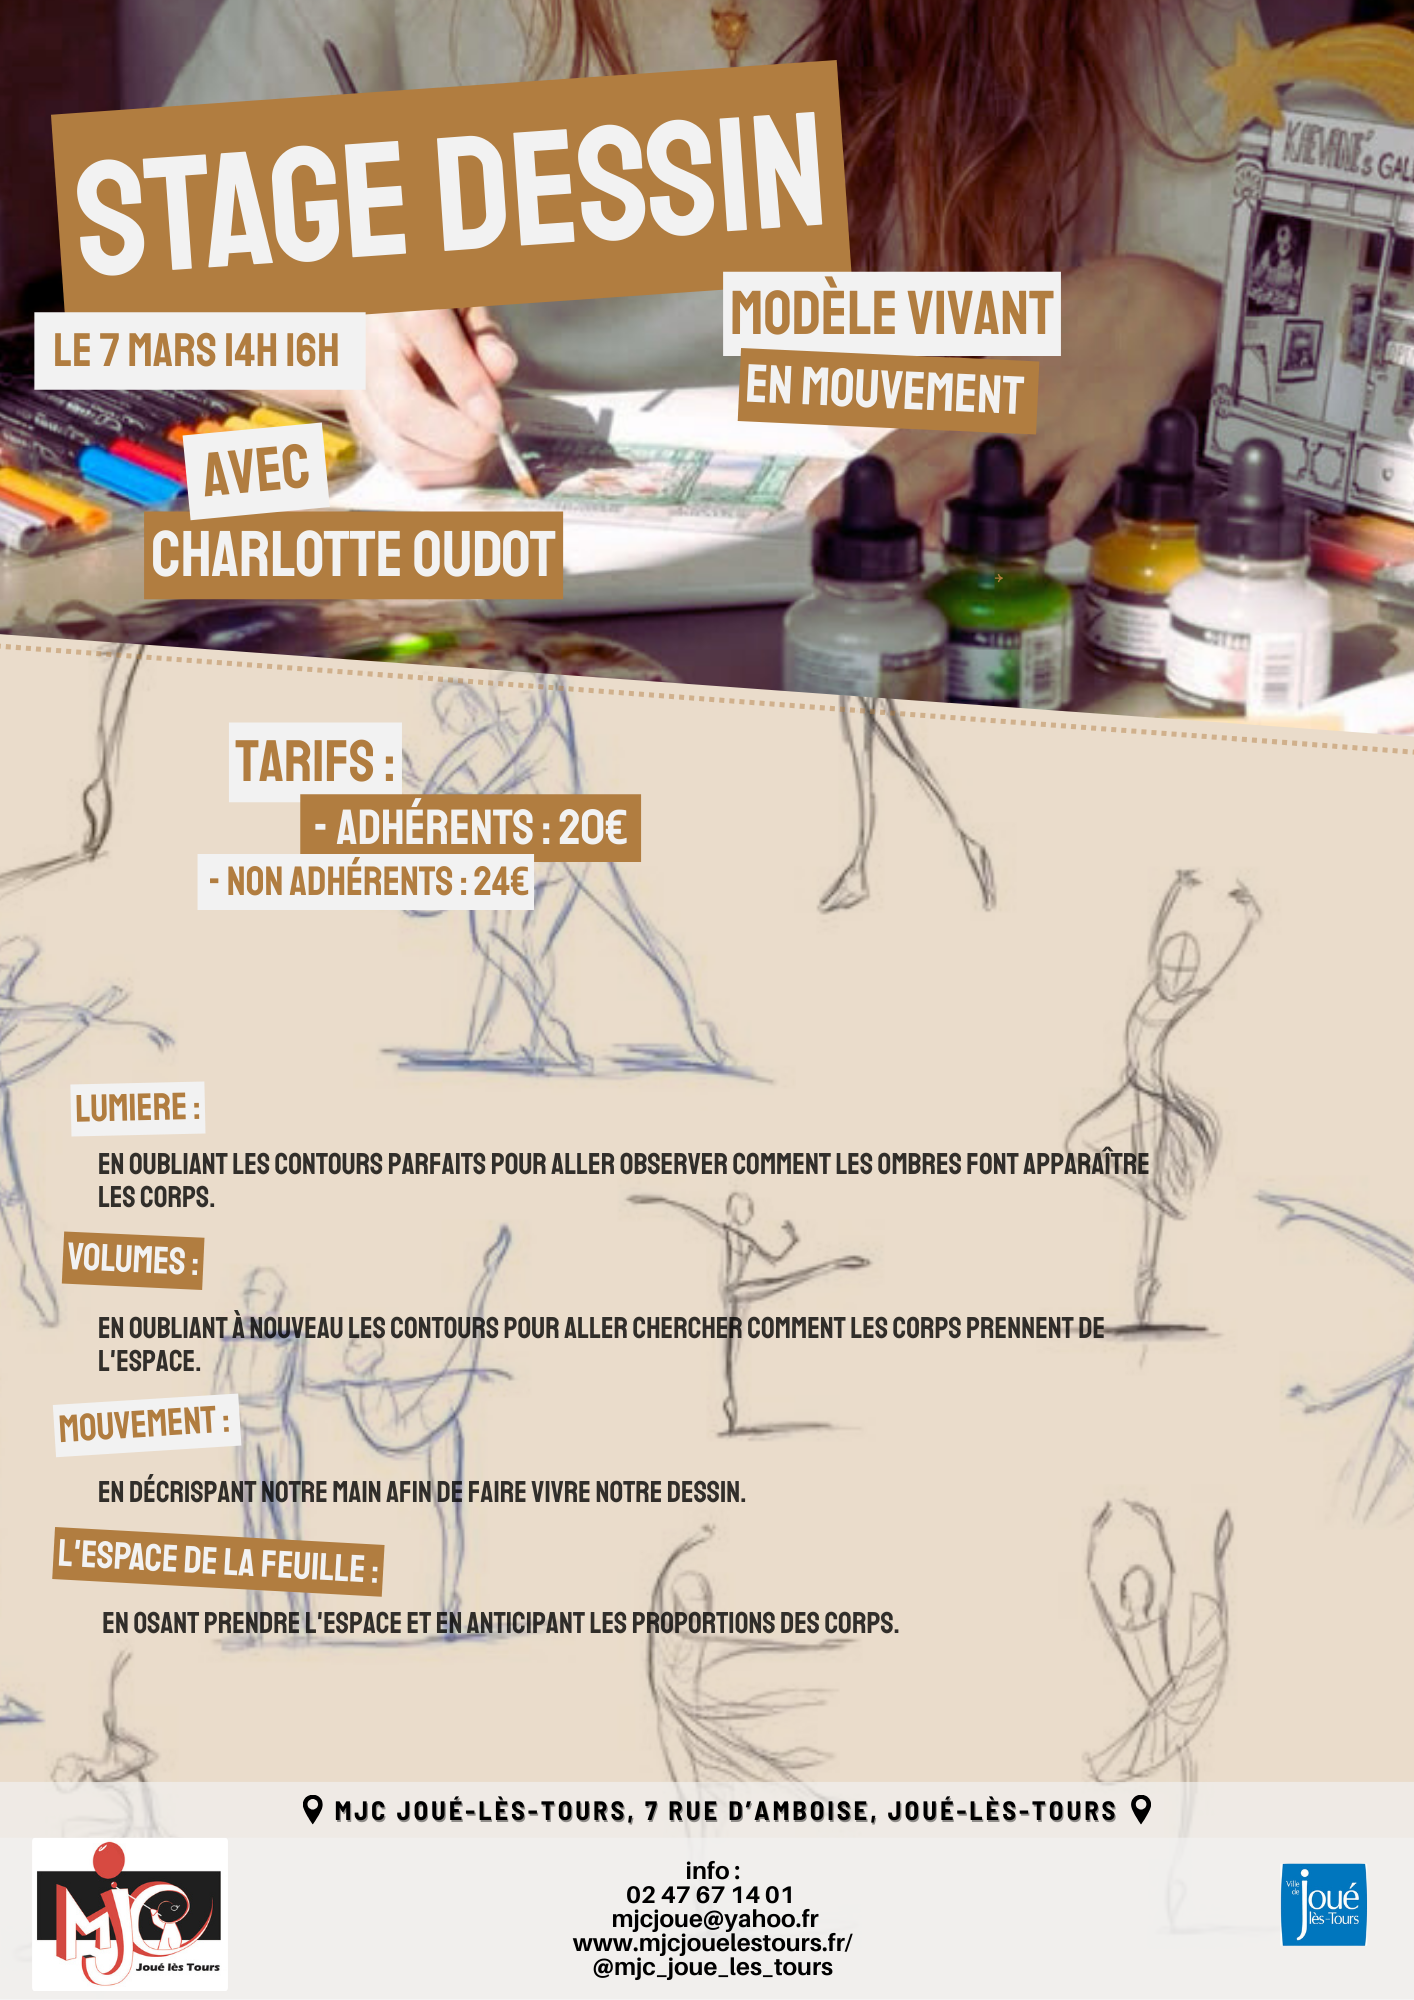 STAGE DESSIN
MODÈLE VIVANT
EN MOUVEMENT
LE 7 MARS 14H 16H
AVEC
CHARLOTTE OUDOT
KAEVANÉ's GAL
TARIFS :
- ADHÉRENTS : 20€
- NON ADHÉRENTS : 24€
LUMIERE :
EN OUBLIANT LES CONTOURS PARFAITS POUR ALLER OBSERVER COMMENT LES OMBRES FONT APPARAÎTRE
LES CORPS.
VOLUMES :
EN OUBLIANT À NOUVEAU LES CONTOURS POUR ALLER CHERCHER COMMENT LES CORPS PRENNENT DE
L'ESPACE.
MOUVEMENT :
EN DÉCRISPANT NOTRE MAIN AFIN DE FAIRE VIVRE NOTRE DESSIN.
L'ESPACE DE LA FEUILLE :
EN OSANT PRENDRE L'ESPACE ET EN ANTICIPANT LES PROPORTIONS DES CORPS.
MJC JOUÉ-LÈS-TOURS, 7 RUE D'AMBOISE, JOUÉ-LÈS-TOURS
MJC
Joué lès Tours
info :
02 47 67 14 01
mjcjoue@yahoo.fr
www.mjcjouelestours.fr/
@mjc_joue_les_tours
Ville
de
joué
lès-Tours